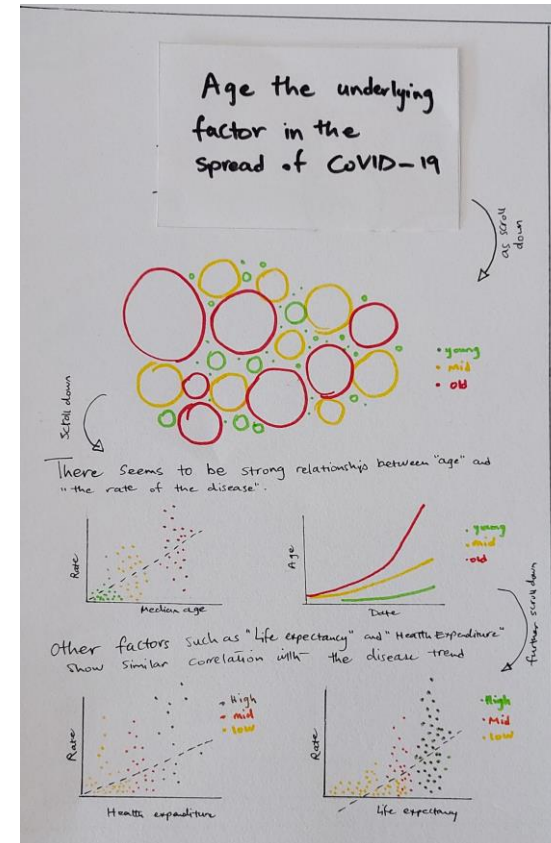 Age the underlying
factor in the
spread of COVID-19
as scroll
down
• young
• mid
• old
Scroll down
There seems to be strong relationships between "age" and
"the rate of the disease".
Rate
Median age
Age
Date
• young
• mid
• old
further scroll down
Other factors such as "Life expectancy" and "Health Expenditure"
show similar correlation with the disease trend
Rate
Health expenditure
• High
• mid
• low
Rate
Life expectancy
• High
• Mid
• low